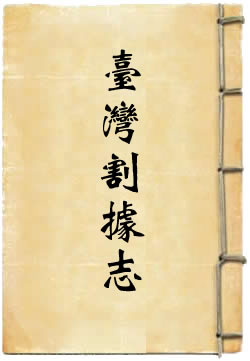 臺灣割據志